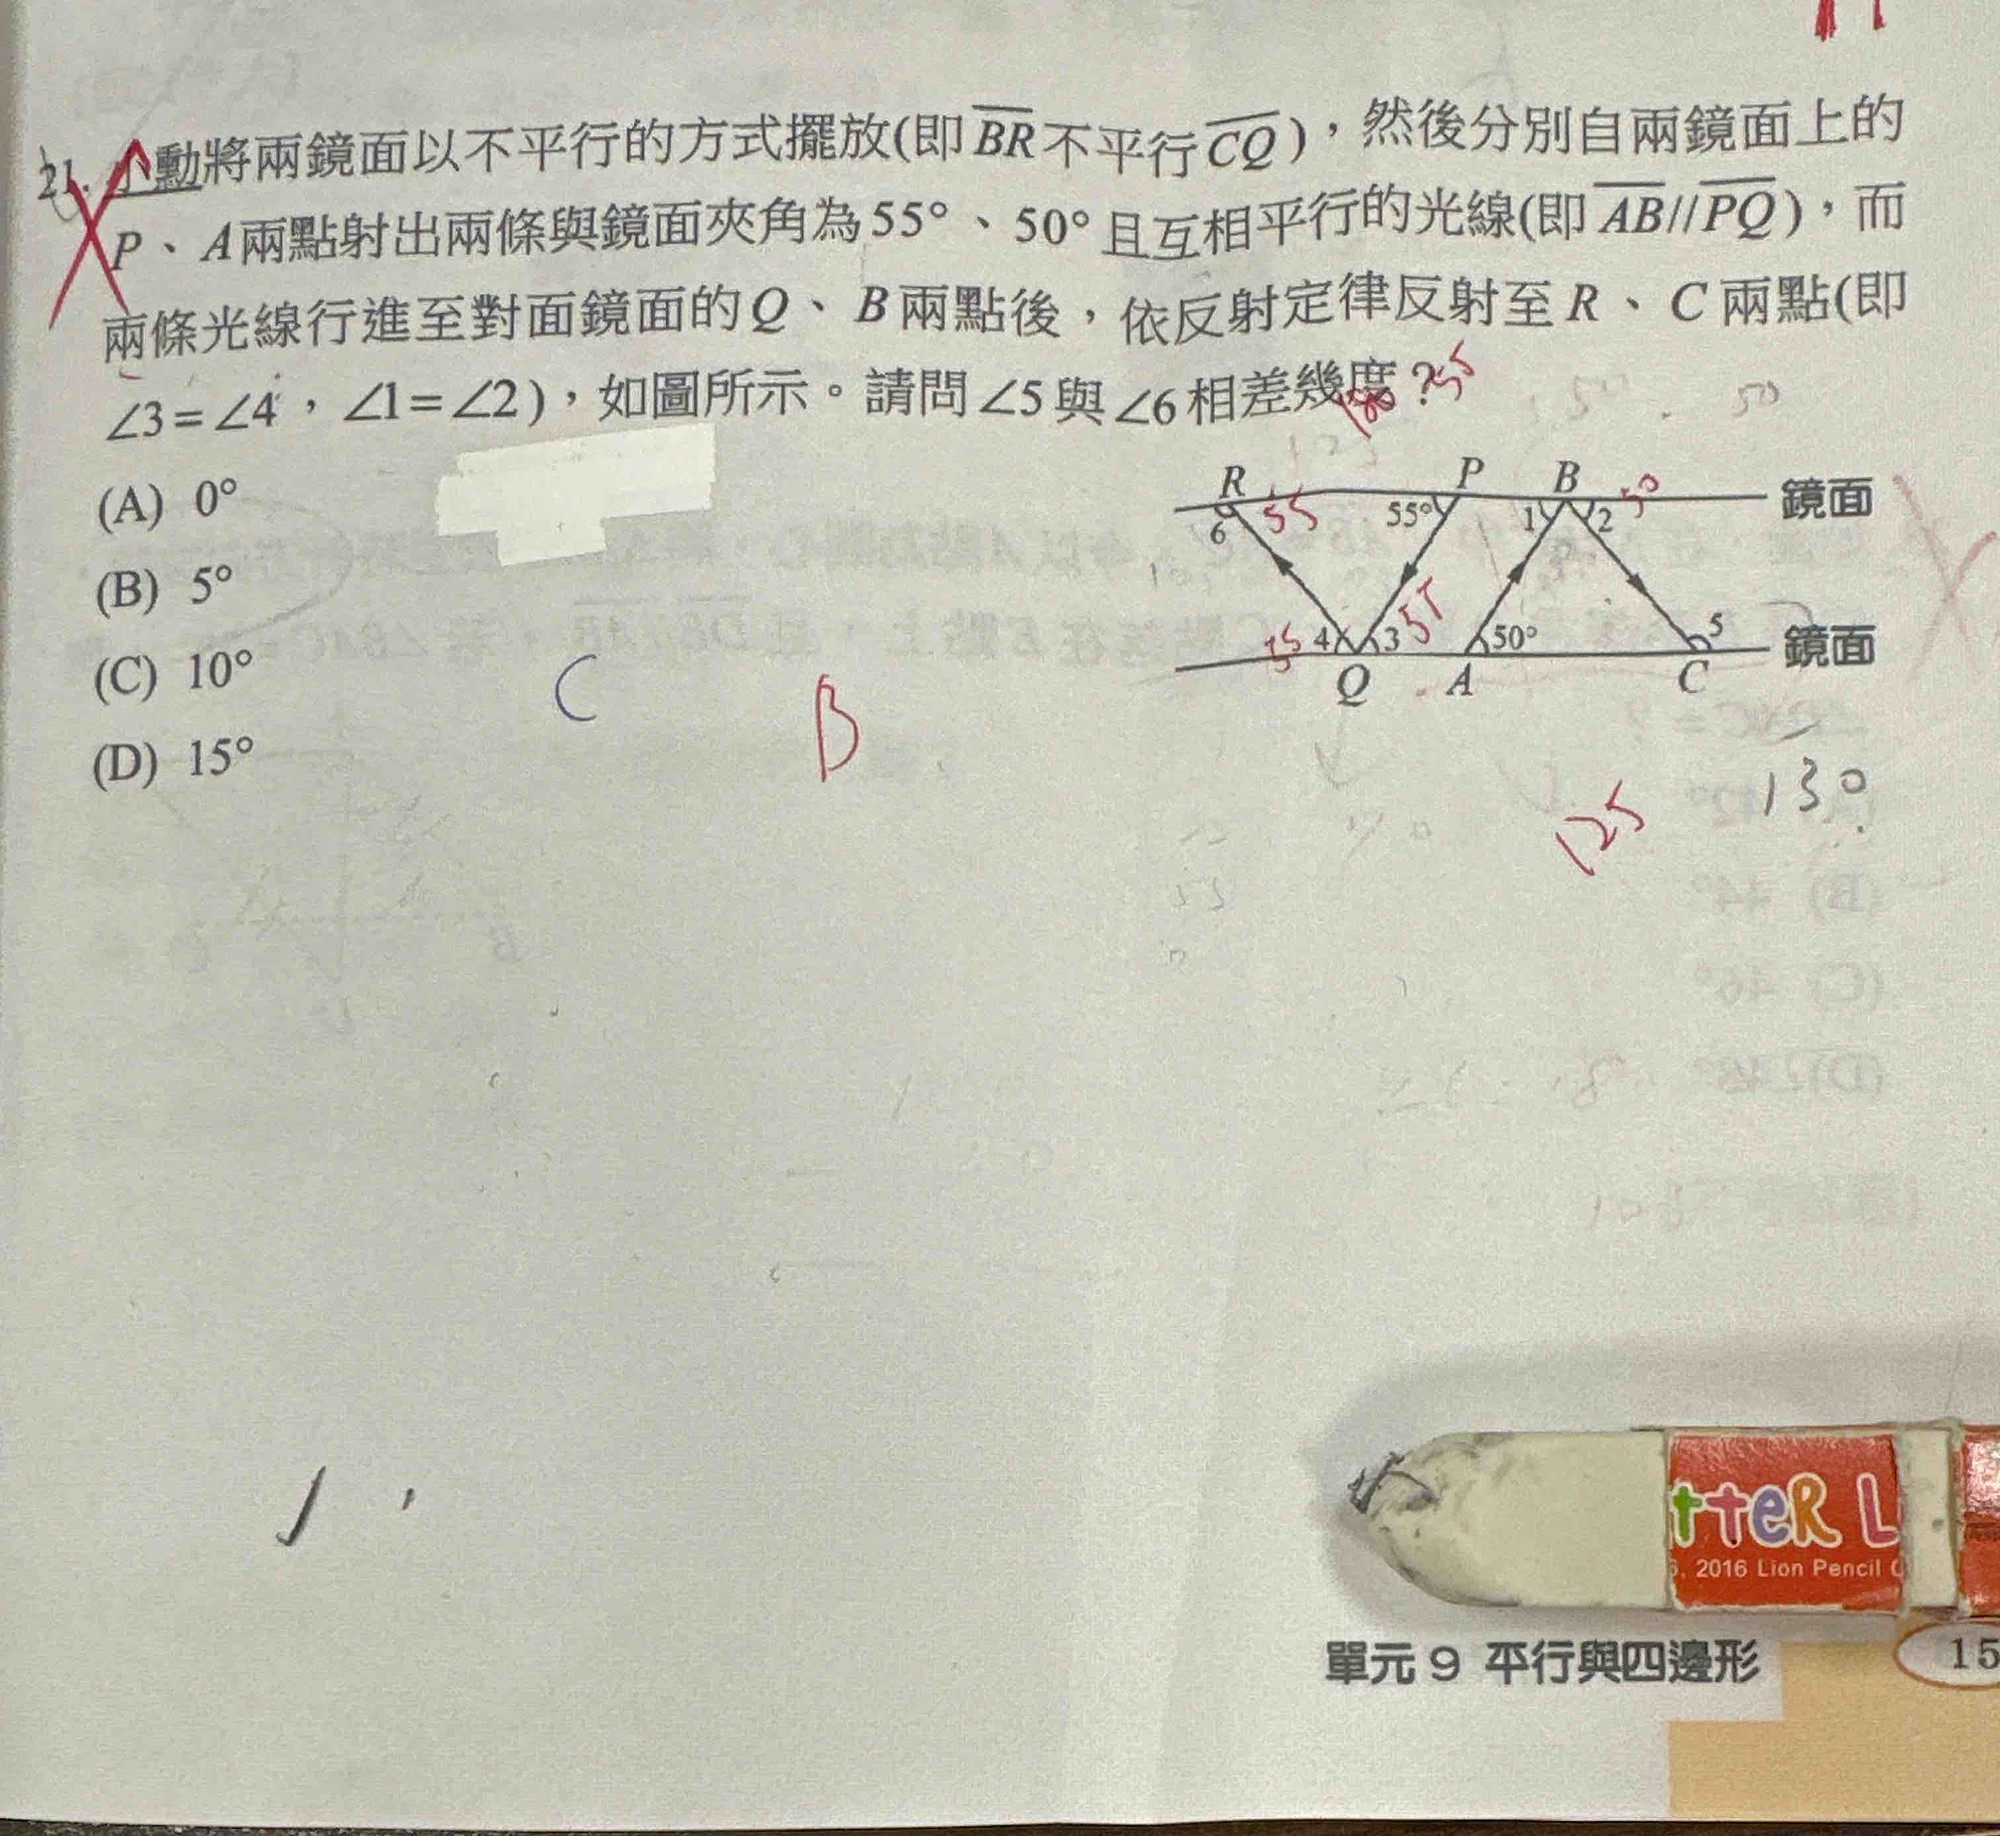 21. 小勳將兩鏡面以不平行的方式擺放(即BR不平行CQ)，然後分別自兩鏡面上的
P、A兩點射出兩條與鏡面夾角為55°、50°且互相平行的光線(即AB//PQ)，而
兩條光線行進至對面鏡面的Q、B兩點後，依反射定律反射至R、C兩點(即
∠3=∠4，∠1=∠2)，如圖所示。請問∠5與∠6相差幾度？
180-55
(A) 0°
(B) 5°
(C) 10°
(D) 15°
C
B
R P B 50 鏡面
6 55 55° 1 2
55 4 3 55 50° 5 鏡面
Q A C
125
130
tteR L
6, 2016 Lion Pencil C
單元 9 平行與四邊形
15